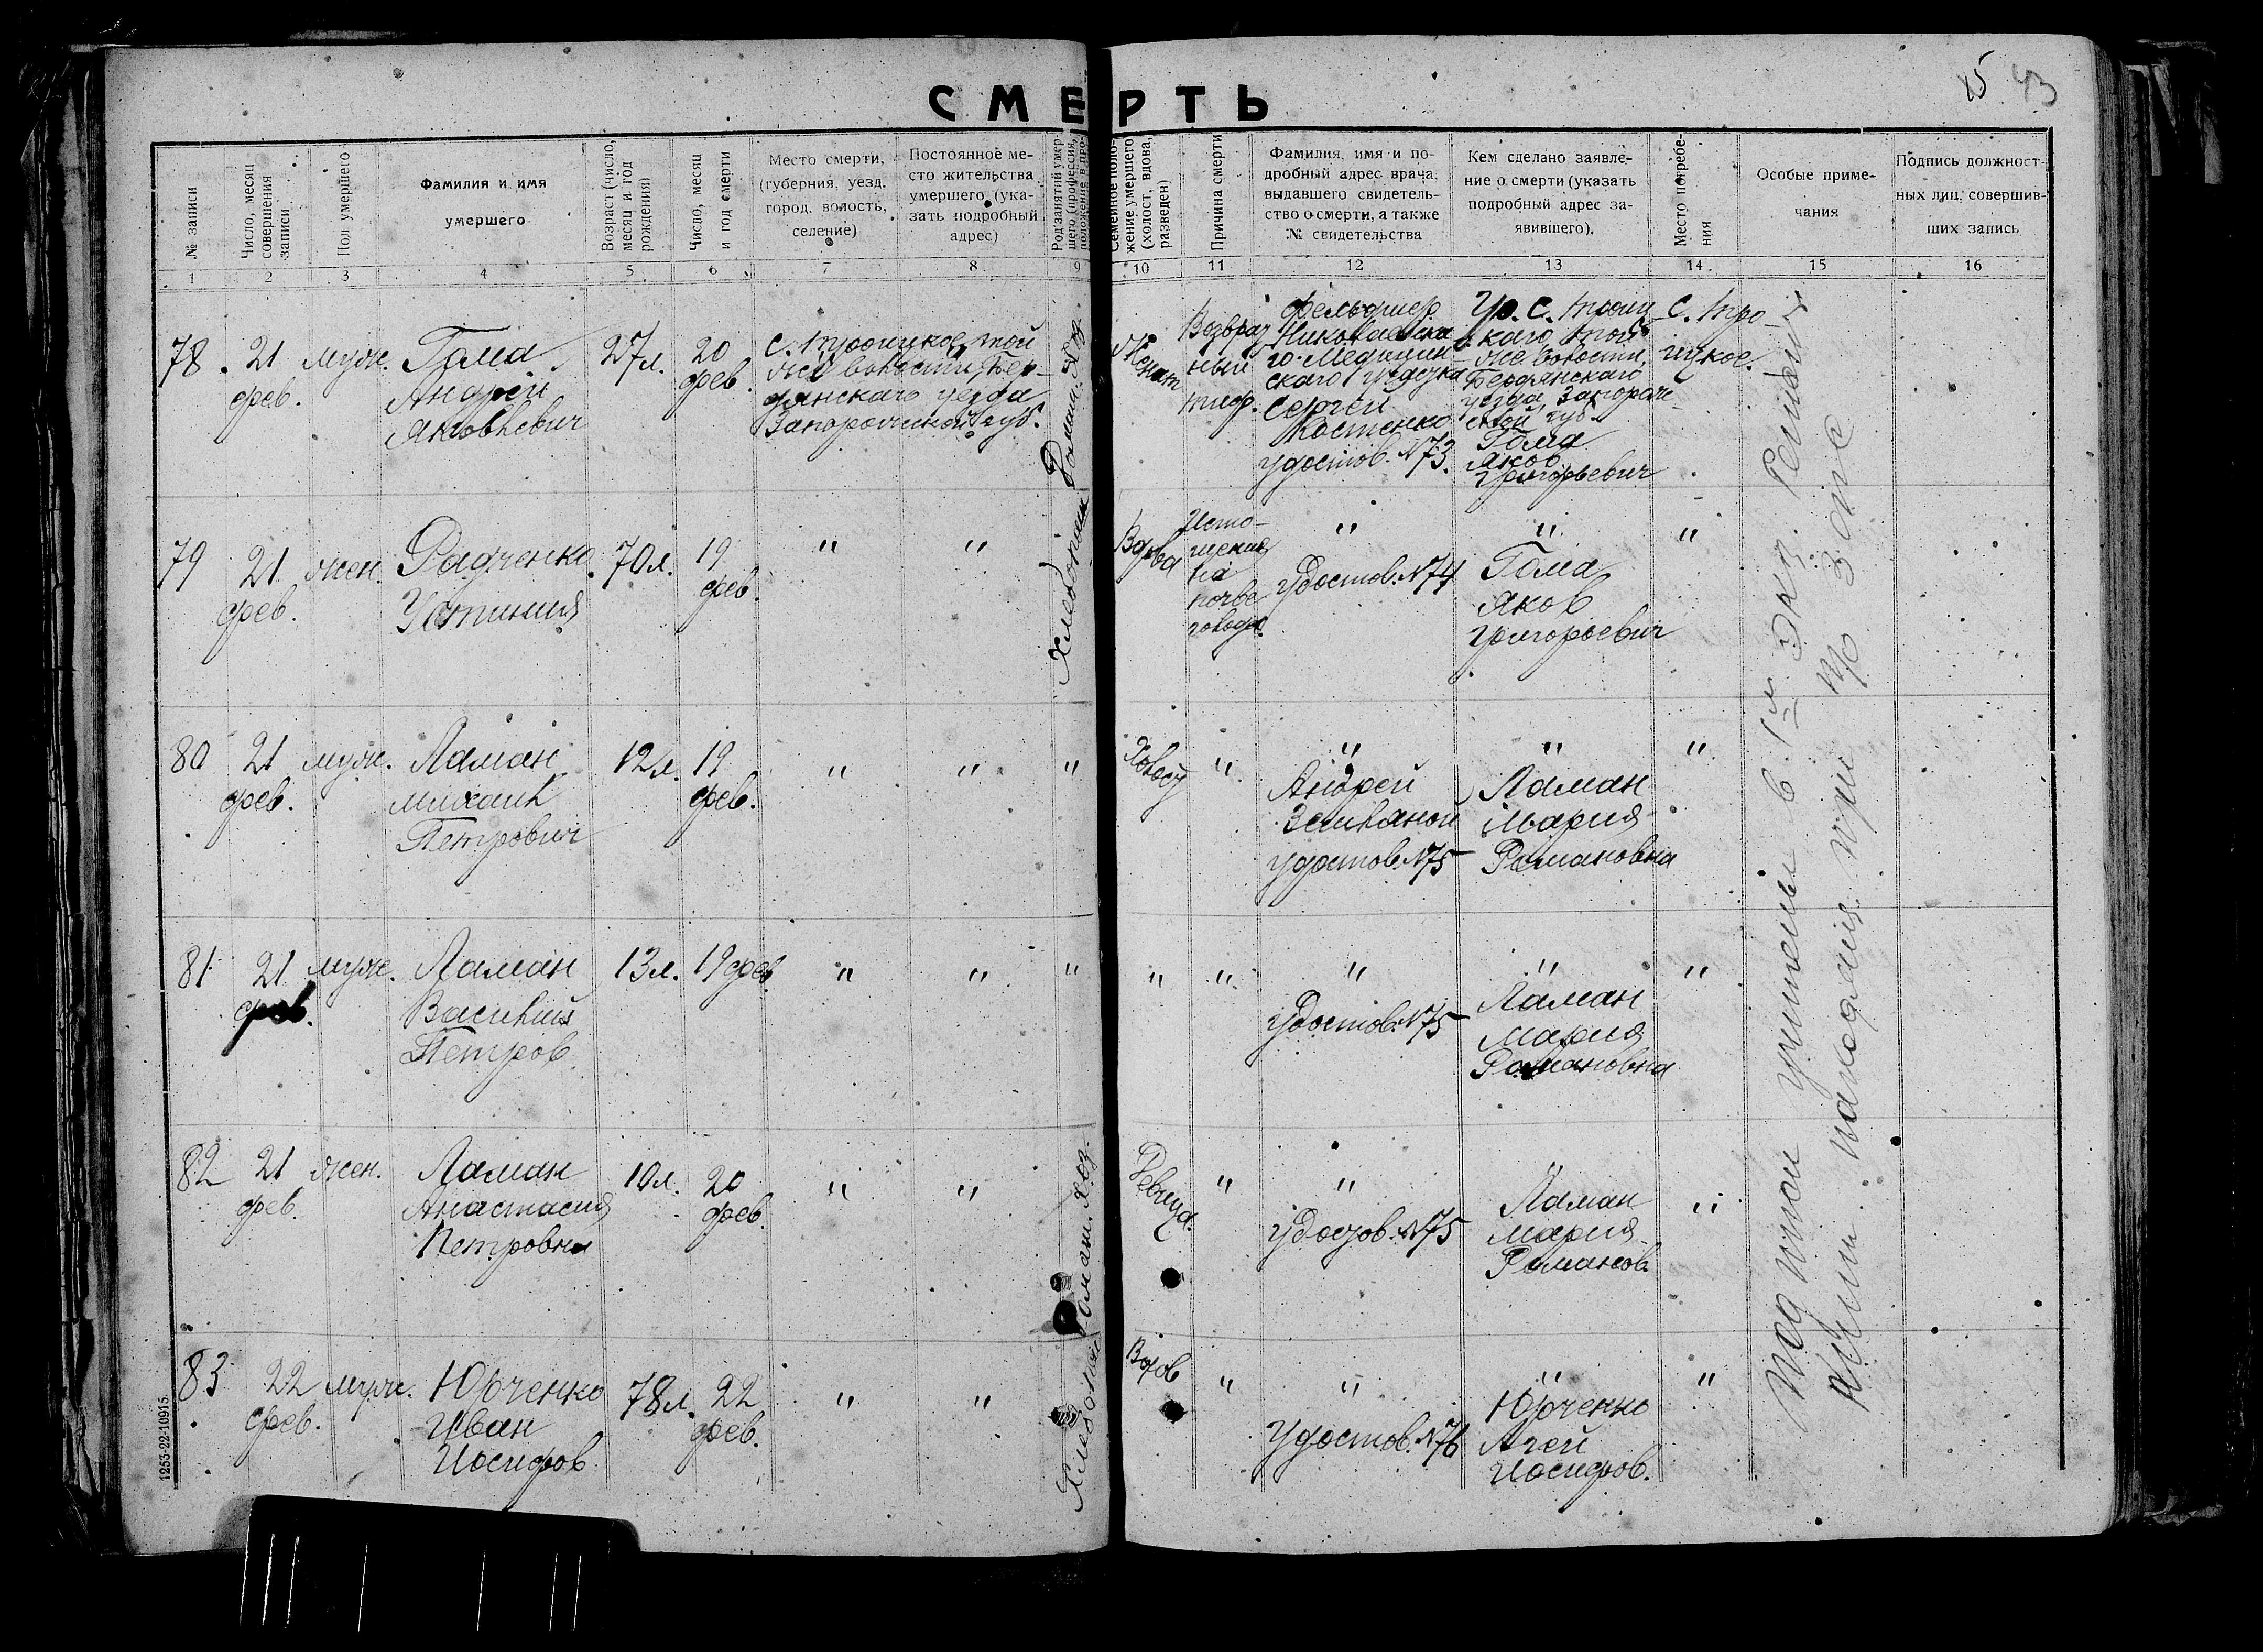 СМЕРТЬ
15 43
№ записи
Число, месяц совершения записи
Пол умершего
Фамилия и имя
умершего
Возраст (число, месяц и год рождения)
Число, месяц и год смерти
Место смерти,
(губерния, уезд,
город, волость,
селение)
Постоянное ме-
сто жительства
умершего (ука-
зать подробный
адрес)
Род занятий умер-
шего (профессия,
положение в про-
Семейное поло-
жение умершего
(холост, вдова,
разведен)
Причина смерти
Фамилия, имя и по-
дробный адрес врача,
выдавшего свидетель-
ство о смерти, а также
№ свидетельства
Кем сделано заявле-
ние о смерти (указать
подробный адрес за-
явившего).
Место погребе-
ния
Особые приме-
чания
Подпись должност-
ных лиц, совершив-
ших запись
1 2 3 4 5 6 7 8 9 10 11 12 13 14 15 16
78.
21
фев.
муж.
Гама
Андрей
Яковлевич
27л.
20
фев.
с. Троицкое, той
же волости, Бер-
дянскаго уезда
Запорожской губ.
Хлебопаш
Домаш. Хоз.
Женат
Возврат
ный
тиф.
Фельдшер
Николаевска
го Медицин
скаго участка
Сергей
Костенко
удостов. №73.
Гр. с. Троиц
каго, той
же волости,
Бердянскаго
уезда, Запорож-
ской губ.
Гама
Яков
Григорьевич
с. Тро-
ицкое.
79
21
фев.
жен.
Радченко
Устиния
70л.
19
фев.
"
"
Вдова
Исто-
щение
на
почве
голода.
"
удостов. №74
"
Гама
Яков
Григорьевич
"
80
21
фев.
муж.
Ламан
Михаил
Петрович
12л.
19
фев.
"
"
"
Холост
"
"
Андрей
удостов. №75
"
Ламан
Мария
Романовна
"
81
21
фев.
муж.
Ламан
Василий
Петров
13л.
19 фев
"
"
"
"
"
"
Удостов. №75
"
Ламан
Мария
Романовна
"
82
21
фев.
жен.
Ламан
Анастасия
Петровна
10л.
20
фев.
"
"
Хлебопаш
Домаш. Хоз.
Девица.
"
"
Удостов. №75
Ламан
Мария
Романов.
"
83
22
фев.
муж.
Юрченко
Иван
Иосифов
78л.
22
фев.
"
"
Вдов
"
"
Удостов. №76
"
Юрченко
Агей
Иосифов.
"
в 1м Экз.
при
1253-22-10915.